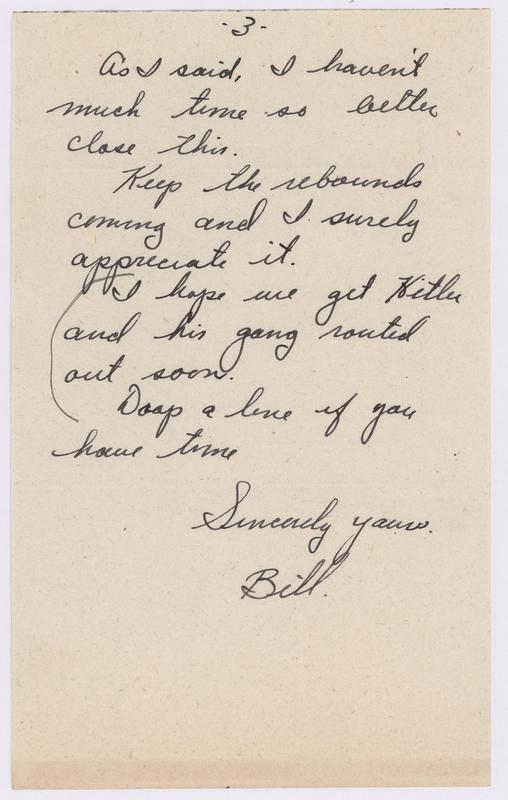 -3-
As I said, I haven't
much time so better
close this.
Keep the rebounds
coming and I surely
appreciate it.
I hope we get Hitler
and his gang routed
out soon.
Drop a line if you
have time
Sincerely yours.
Bill.